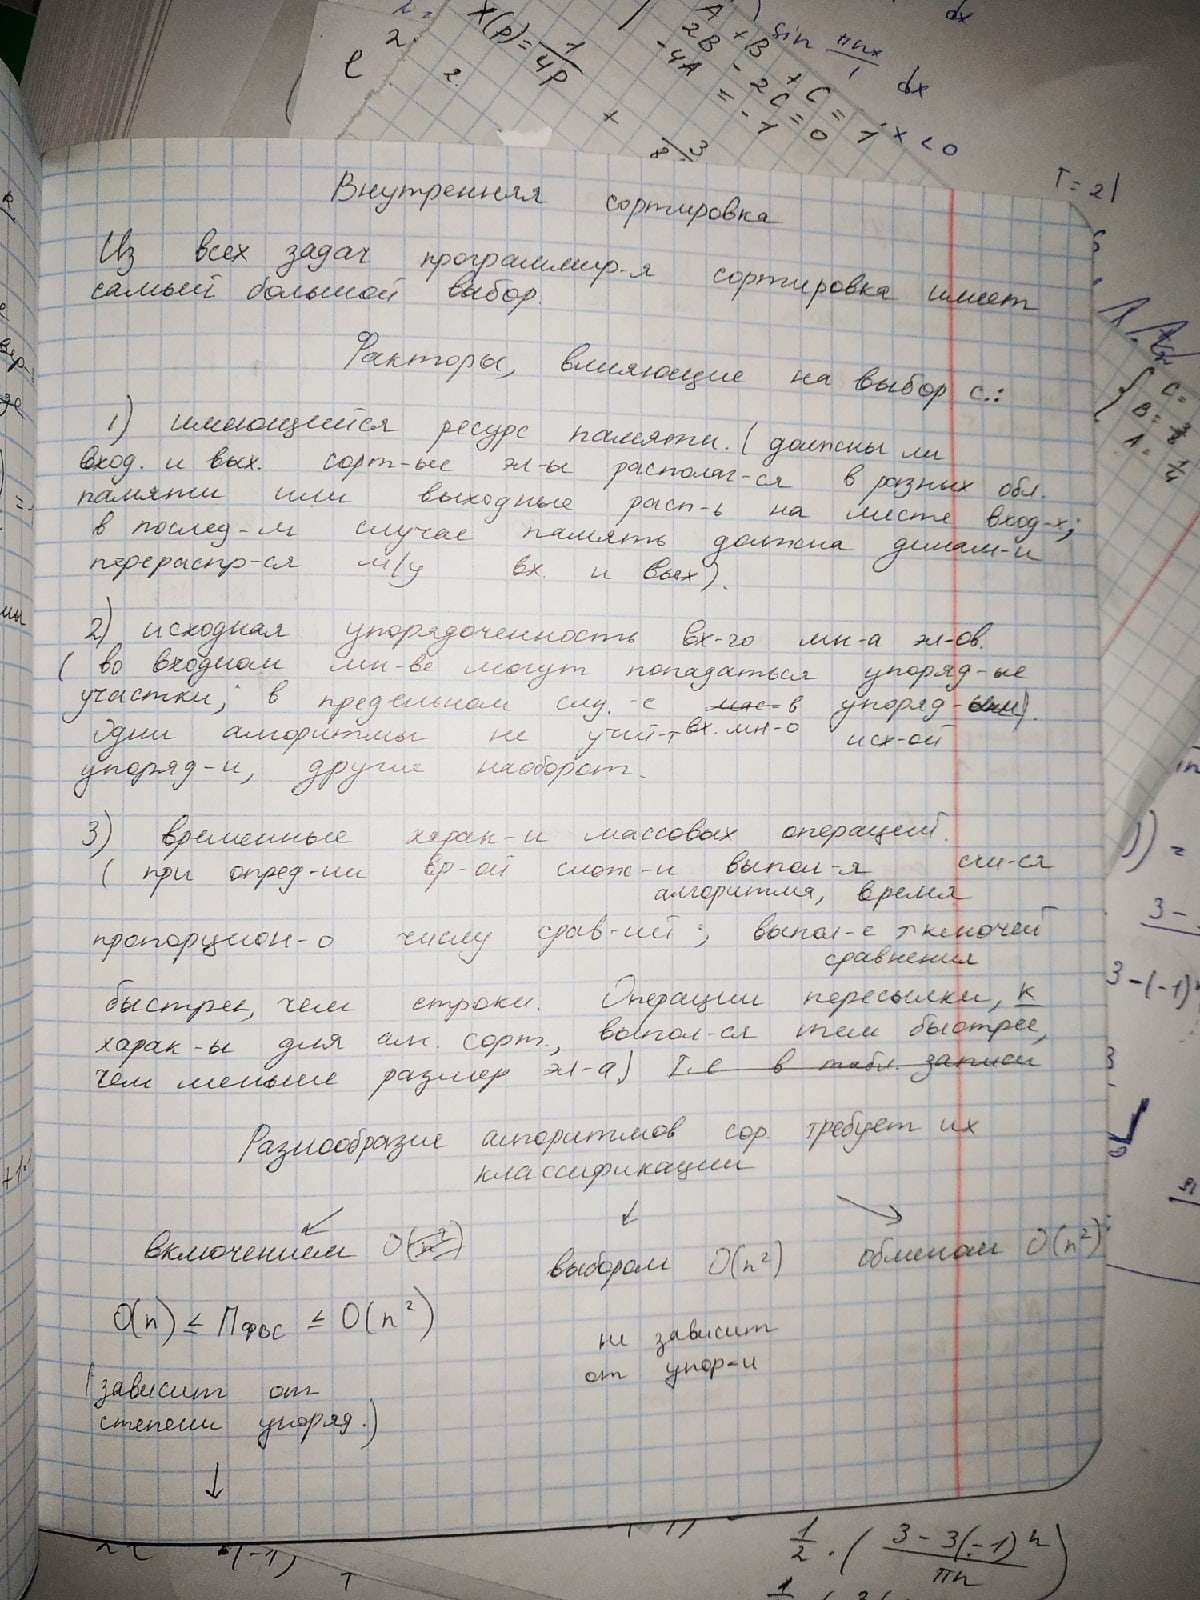 Внутренняя сортировка
Из всех задач программир-я сортировка имеет
самый большой выбор.
Факторы, влияющие на выбор с.:
1) имеющийся ресурс памяти. (должны ли
вход. и вых. сорт-ые эл-ы располаг-ся в разных обл.
памяти или выходные расп-ь на месте вход-х;
в послед-м случае память должна динам-и
перераспр-ся м/у вх. и вых).
2) исходная упорядоченность вх-го мн-а эл-ов.
(во входном мн-ве могут попадаться упоряд-ые
участки; в предельном слу-е упоряд-
вх. мн-о
Одни алгоритмы не учит-т исх-ой
упоряд-и, другие наоборот.
3) временные харак-и массовых операций.
(при опред-ии вр-ой слож-и выпол-я
алгоритма, время
пропорцион-о числу срав-ий; выпол-е ключей
сравнения
быстрее, чем строки. Операции пересылки, к
харак-ы для ал. сорт., выпол-ся тем быстрее,
чем меньше размер эл-а) Т.е в табл. записи
Разнообразие алгоритмов сор. требует их
классификации
включением O(n²)
выбором O(n²)
обменом O(n²)
O(n) ≤ Пфвс ≤ O(n²)
не зависит
от упор-и
(зависит от
степени упоряд.)
X(p) = 1/4p
2.
+
3/8
A + B + C = 1
2B - 2C = 0
-4A = -1
sin πnx/l dx
x < 0
T = 2l
C =
B = 3/8
A = 1/4
3 - (-1)ⁿ
1/2 · (3 - 3(-1)ⁿ / πn)